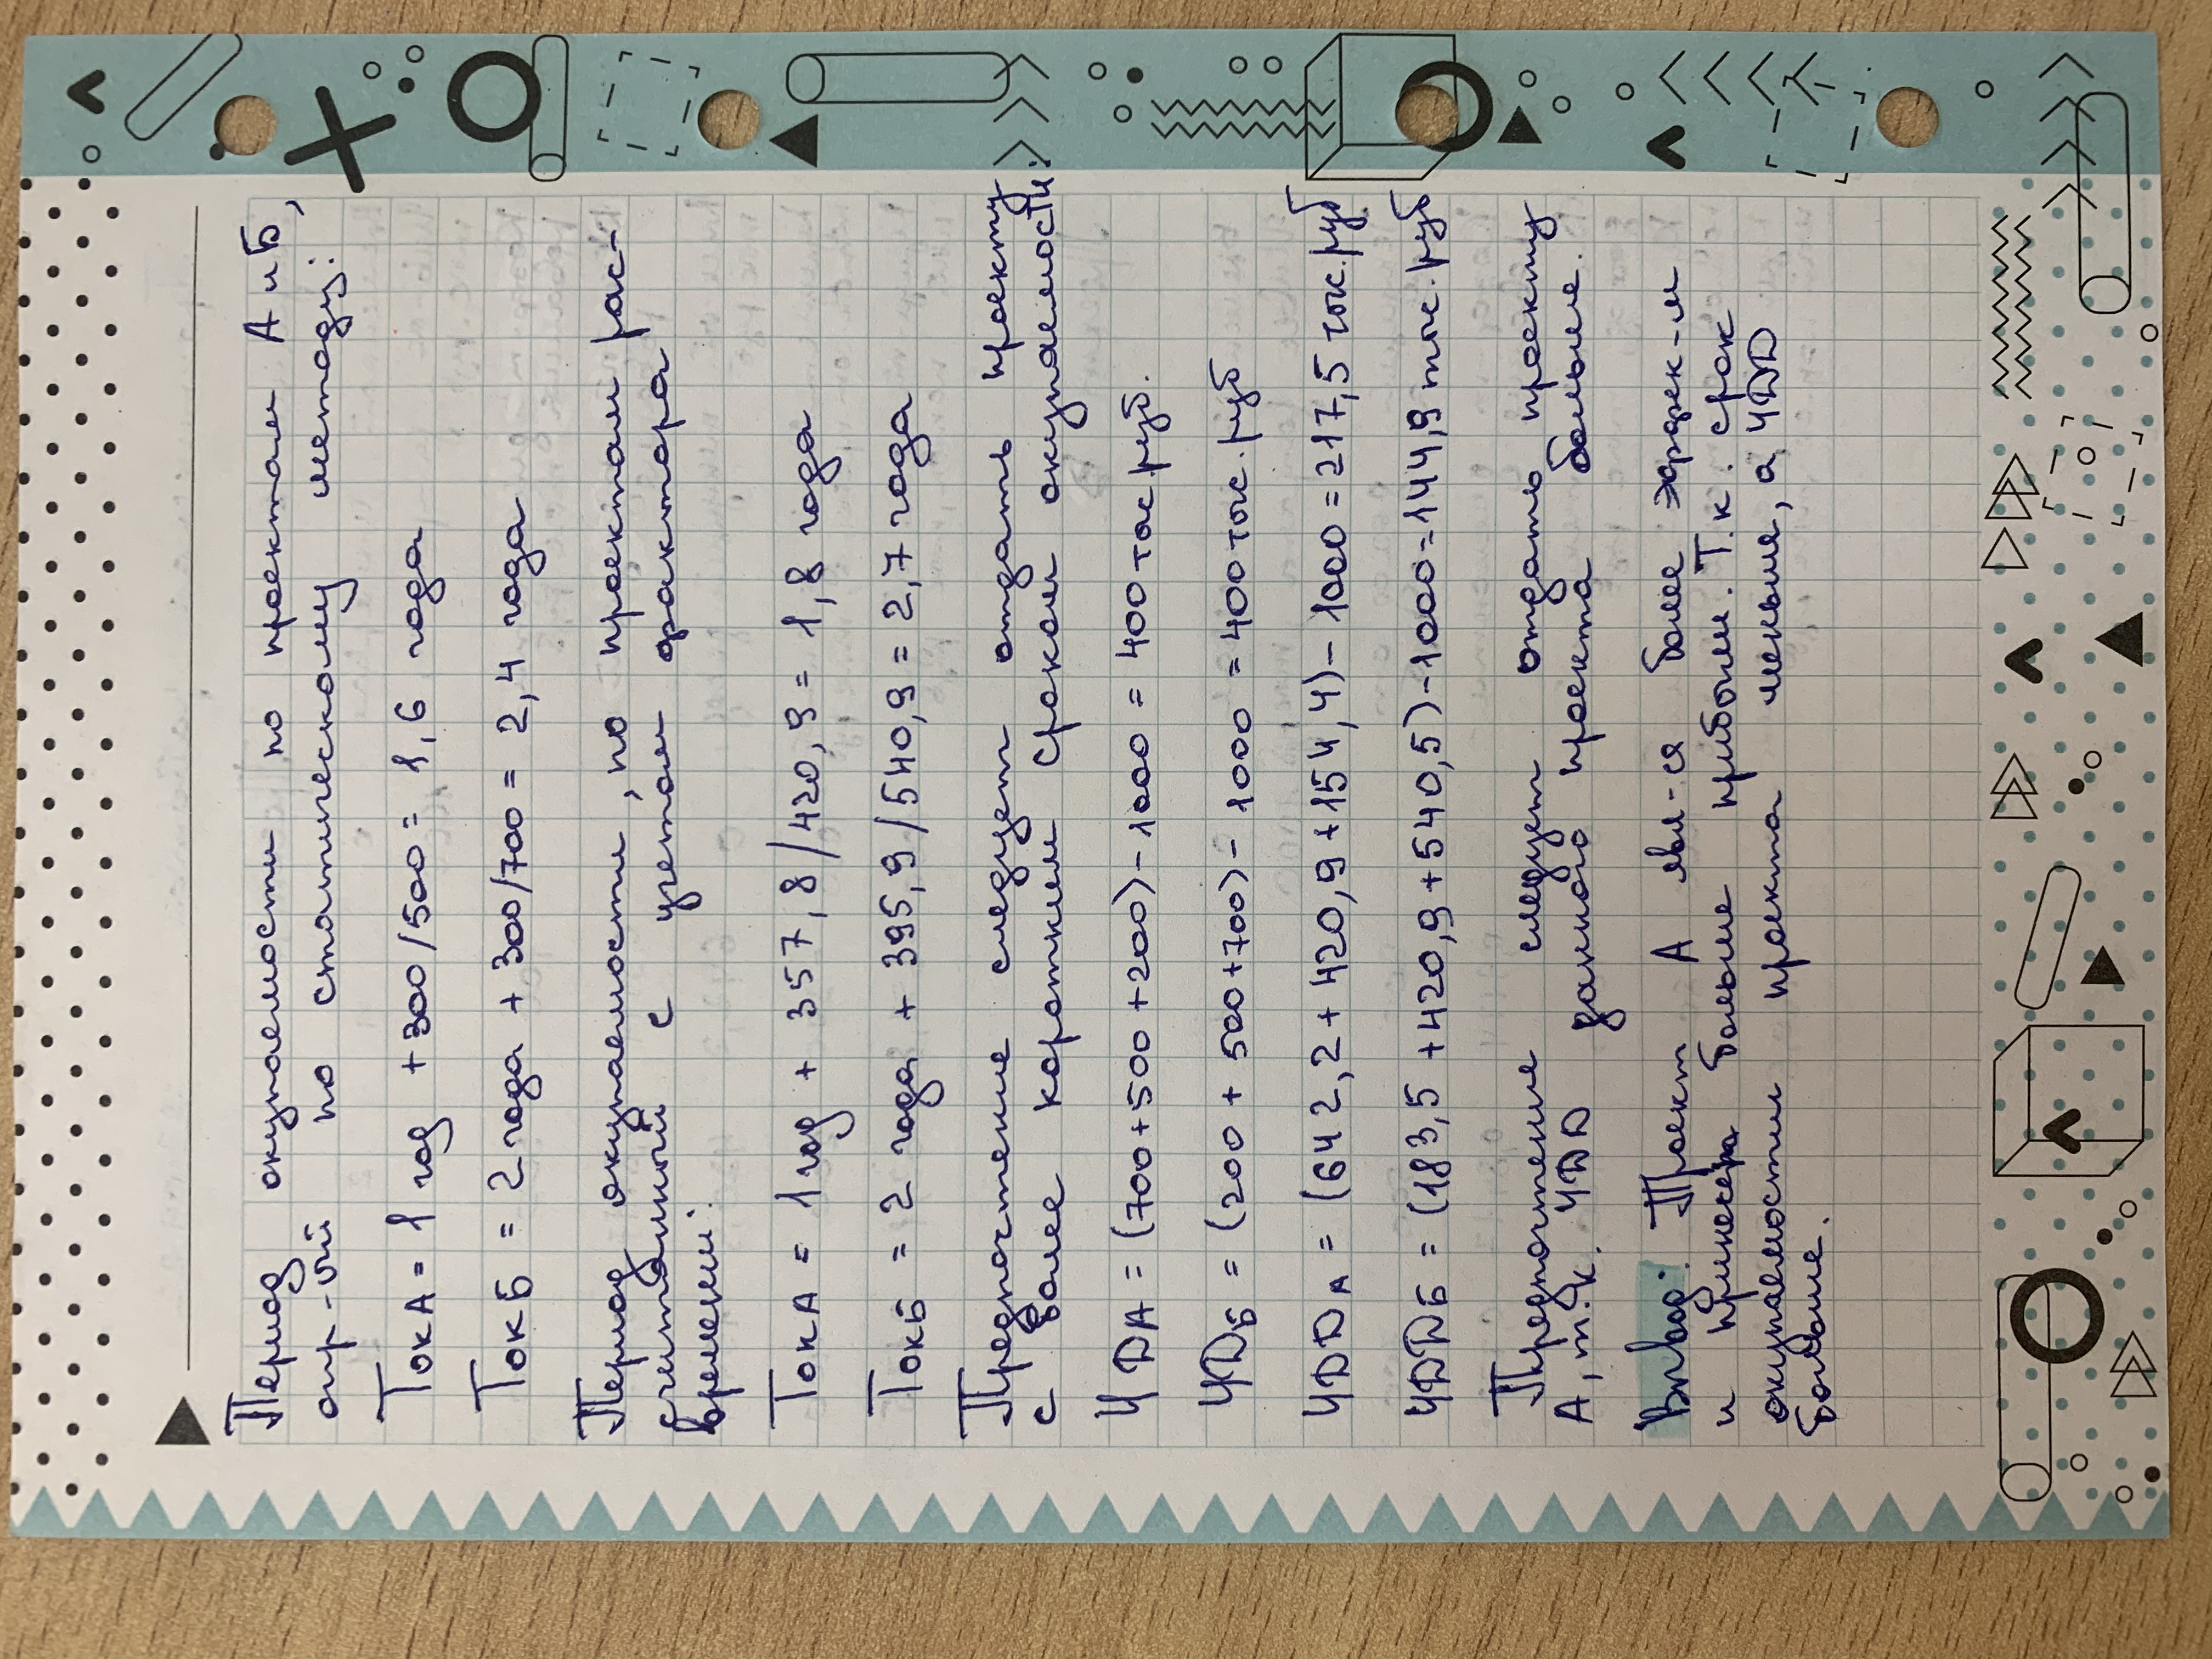 Период окупаемости по проектам А и Б,
опр-ый по статическому методу:
Ток А = 1 год + 300/500 = 1,6 года
Ток Б = 2 года + 300/700 = 2,4 года
Период окупаемости, по проектам рас-
считанный с учетом фактора
времени:
Ток А = 1 год + 357,8/420,9 = 1,8 года
Ток Б = 2 года + 395,9/540,9 = 2,7 года
Предпочтение следует отдать проекту
с более коротким сроком окупаемости:
ЧДА = (700+500+200)-1000 = 400 тыс.руб.
ЧДБ = (200 + 500+700)-1000 = 400 тыс. руб
ЧДДА = (642,2+420,9+154,4)-1000=217,5 тыс.руб
ЧДДБ = (183,5+420,9+540,5)-1000=144,9 тыс. руб
Предпочтение следует отдать проекту
А, т.к. ЧДД данного проекта больше.
Вывод: Проект А явл-ся более эффек-м
и принесёт больше прибыли. Т.к. срок
окупаемости проекта меньше, а ЧДД
больше.